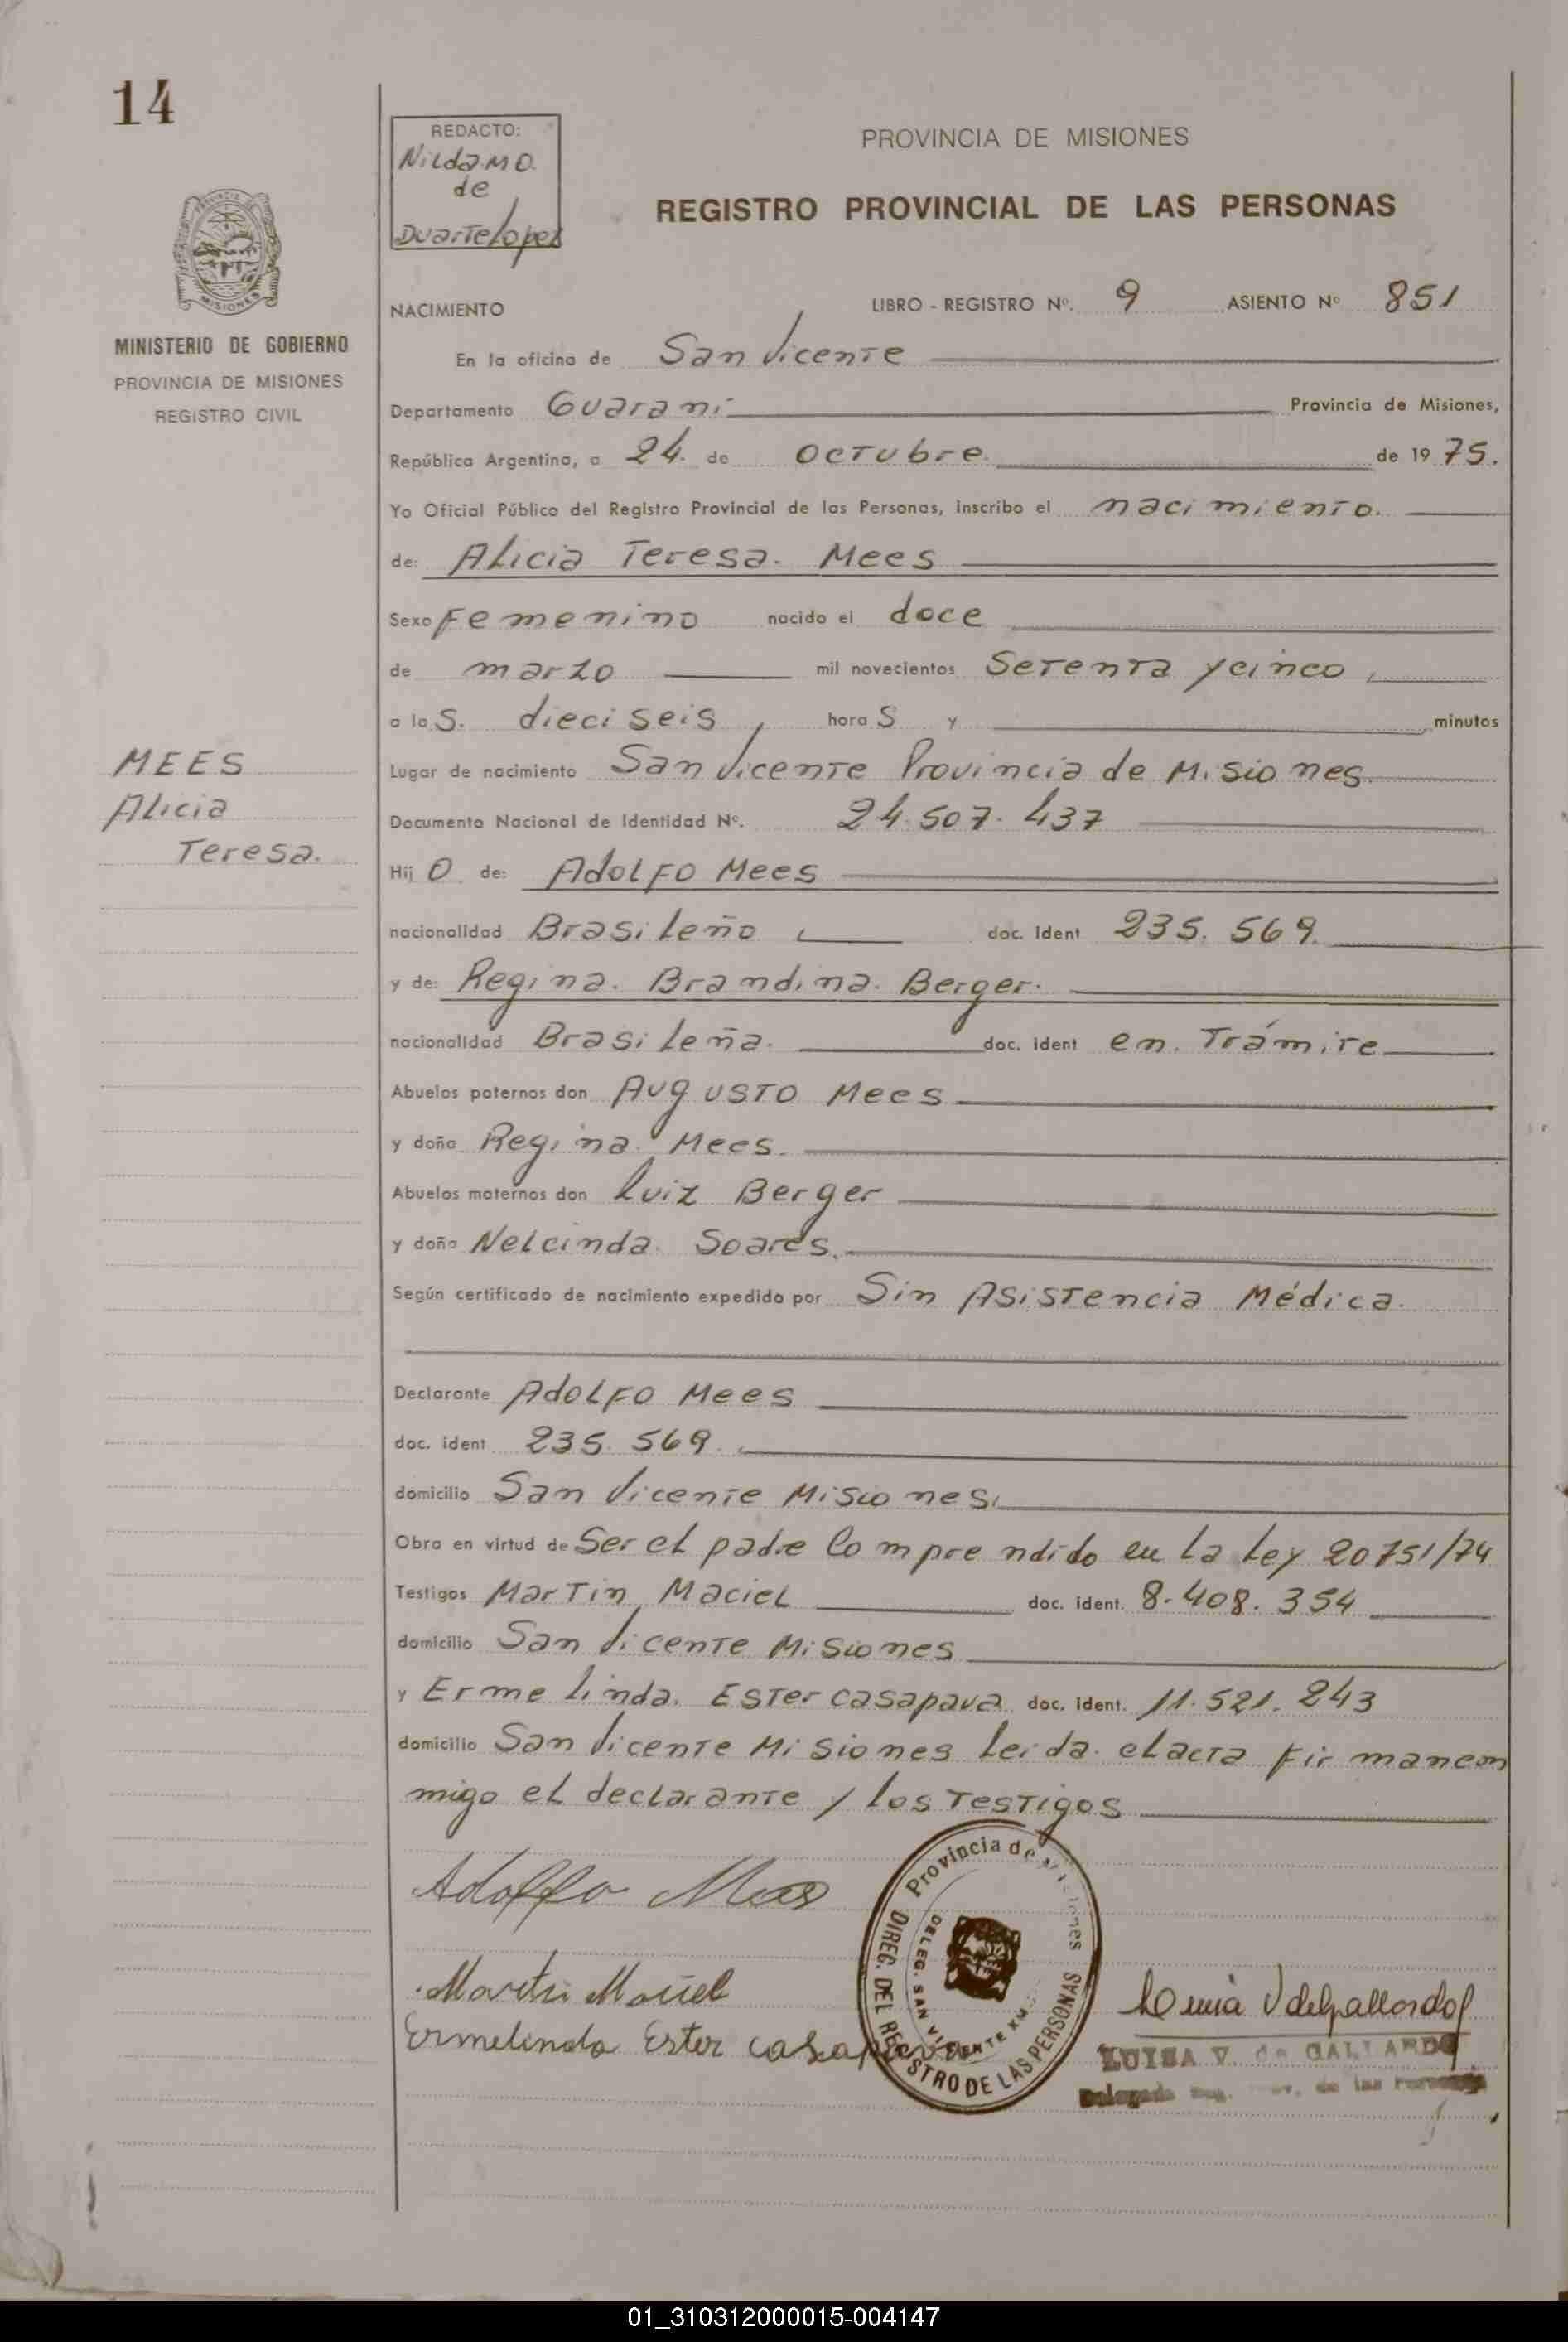 14
REDACTO:
Nilda M O.
de
Duarte Lopez
PROVINCIA DE MISIONES
REGISTRO PROVINCIAL DE LAS PERSONAS
MISIONES
MINISTERIO DE GOBIERNO
PROVINCIA DE MISIONES
REGISTRO CIVIL
NACIMIENTO LIBRO - REGISTRO Nº. 9 ASIENTO Nº 851
En la oficina de San Vicente
Departamento Guarani Provincia de Misiones,
República Argentina, a 24. de Octubre. de 19 75.
Yo Oficial Público del Registro Provincial de las Personas, inscribo el nacimiento.
de: Alicia Teresa. Mees
Sexo Femenino nacido el doce
de marzo mil novecientos Setenta y cinco
a la s. dieciseis hora s y minutos
MEES
Alicia
Teresa.
Lugar de nacimiento San Vicente Provincia de Misiones.
Documento Nacional de Identidad Nº. 24.507.437
Hij O de: Adolfo Mees
nacionalidad Brasileño doc. ident 235.569.
y de: Regina. Brandina. Berger.
nacionalidad Brasileña. doc. ident en. Trámite
Abuelos paternos don Augusto Mees
y doña Regina Mees.
Abuelos maternos don Luiz Berger
y doña Nelcinda. Soares.
Según certificado de nacimiento expedido por Sin Asistencia Médica.
Declarante Adolfo Mees
doc. ident 235.569.
domicilio San Vicente Misiones
Obra en virtud de Ser el padre Comprendido en La Ley 20751/74
Testigos Martin Maciel doc. ident. 8.408.354
domicilio San Vicente Misiones
y Ermelinda. Ester casapava doc. ident. 11.521.243
domicilio San Vicente Misiones Leida. el acta firman con
migo el declarante y los Testigos
Adolfo Mees
Martin Maciel
Ermelinda Ester casapava
Provincia de Misiones
DIREG. DEL REGISTRO DE LAS PERSONAS
DELEG. SAN VICENTE
LUISA V. de GALLARDO
Delegada de las Personas
01_310312000015-004147